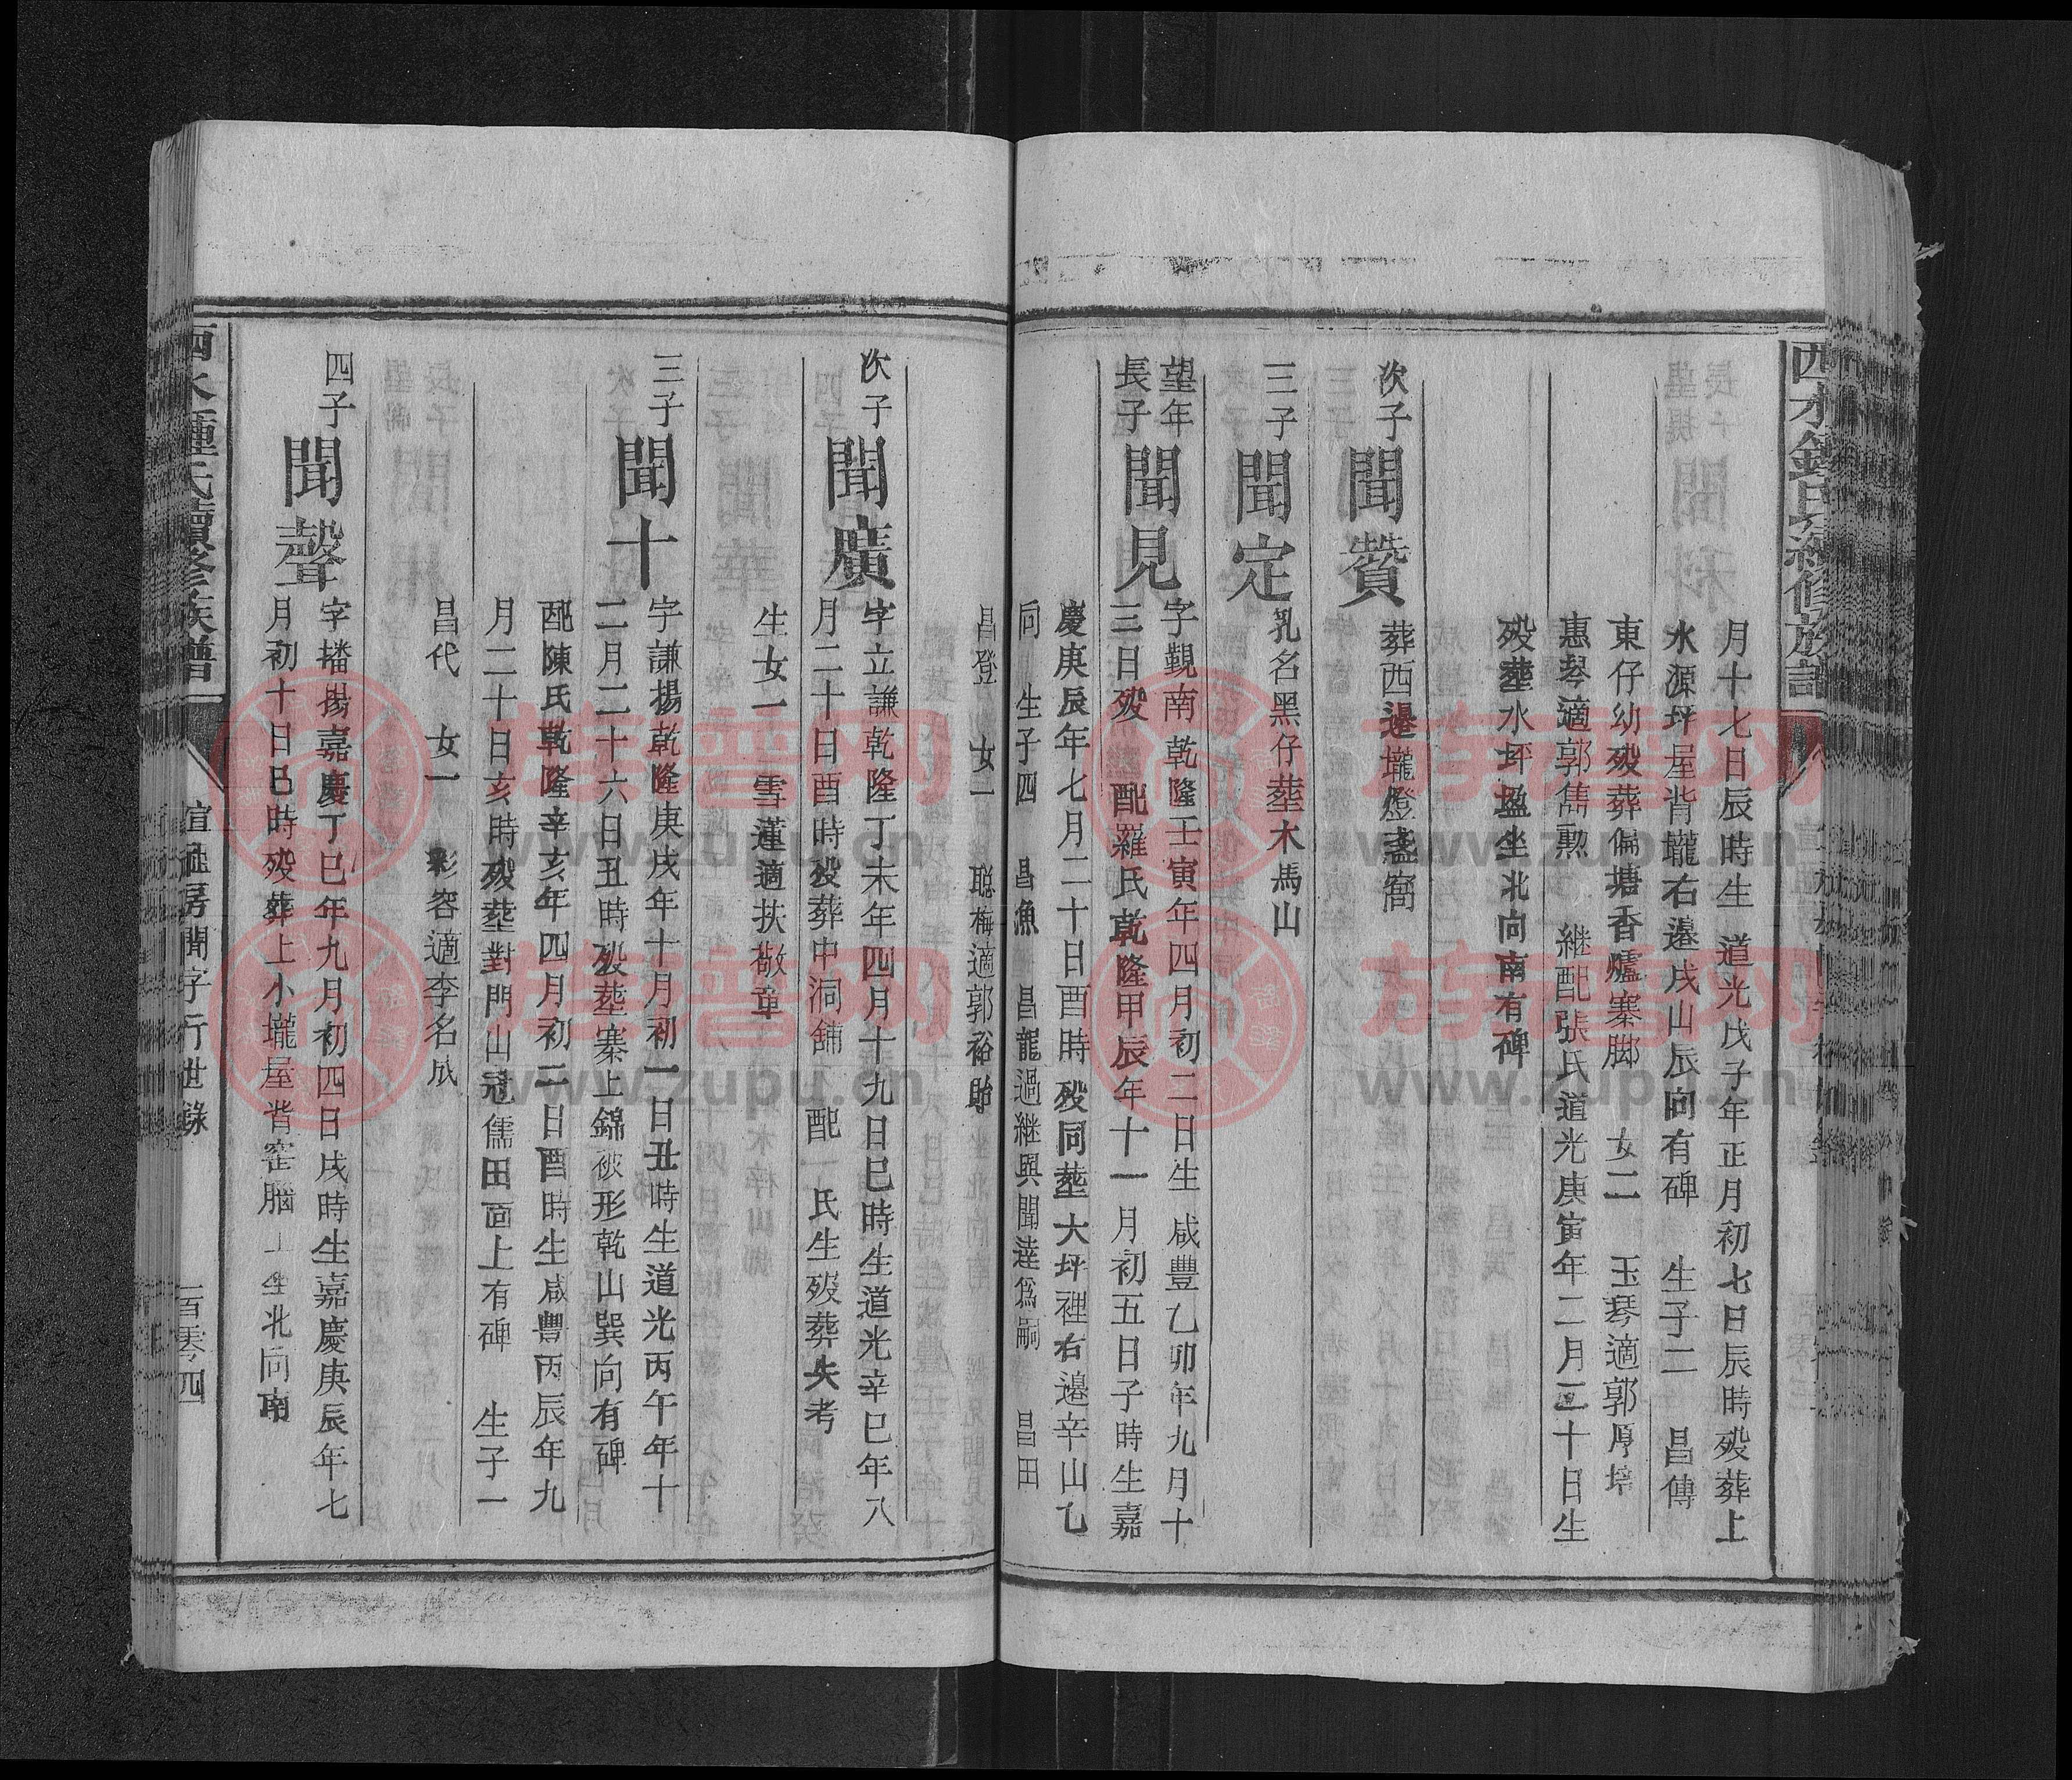 月十七日辰時生 道光戊子年正月初七日辰時殁葬上
水源坪屋背壠右邉戌山辰向有碑 生子二 昌傳
東仔幼殁葬偏塘香爐寨脚 女二 玉琴適郭厚培
惠琴適郭雋勲 継配張氏道光庚寅年二月三十日生
殁塟水坪坐北向南有碑
次子
聞贊
葬西邉壠燈盞窩
三子
聞定
乳名黑仔塟木馬山
望年
長子
聞見
字觀南乾隆壬寅年四月初二日生 咸豐乙卯年九月十
三日殁 配羅氏乾隆甲辰年十一月初五日子時生嘉
慶庚辰年七月二十日酉時殁同塟大坪裡右邉辛山乙
向 生子四 昌漁 昌龍過継與聞逵為嗣 昌田
昌登 女一 聰梅適郭裕貽
次子
聞廣
字立謙乾隆丁未年四月十九日巳時生道光辛巳年八
月二十日酉時殁葬中洞鋪 配 氏生殁葬失考
生女一 雪蓮適扶敬章
三子
聞十
字謙揚乾隆庚戌年十月初一日丑時生道光丙午年十
二月二十六日丑時殁塟寨上錦被形乾山巽向有碑
配陳氏乾隆辛亥年四月初二日酉時生咸豐丙辰年九
月二十日亥時殁塟對門山冠儒田面上有碑 生子一
昌代 女一 彩容適李名成
四子
聞聲
字播揚嘉慶丁巳年九月初四日戌時生嘉慶庚辰年七
月初十日巳時殁葬上小壠屋背窑腦上坐北向南
房聞字行世錄
一百零四
族譜网
www.zupu.cn
族譜网
www.zupu.cn
族譜网
www.zupu.cn
族譜网
www.zupu.cn